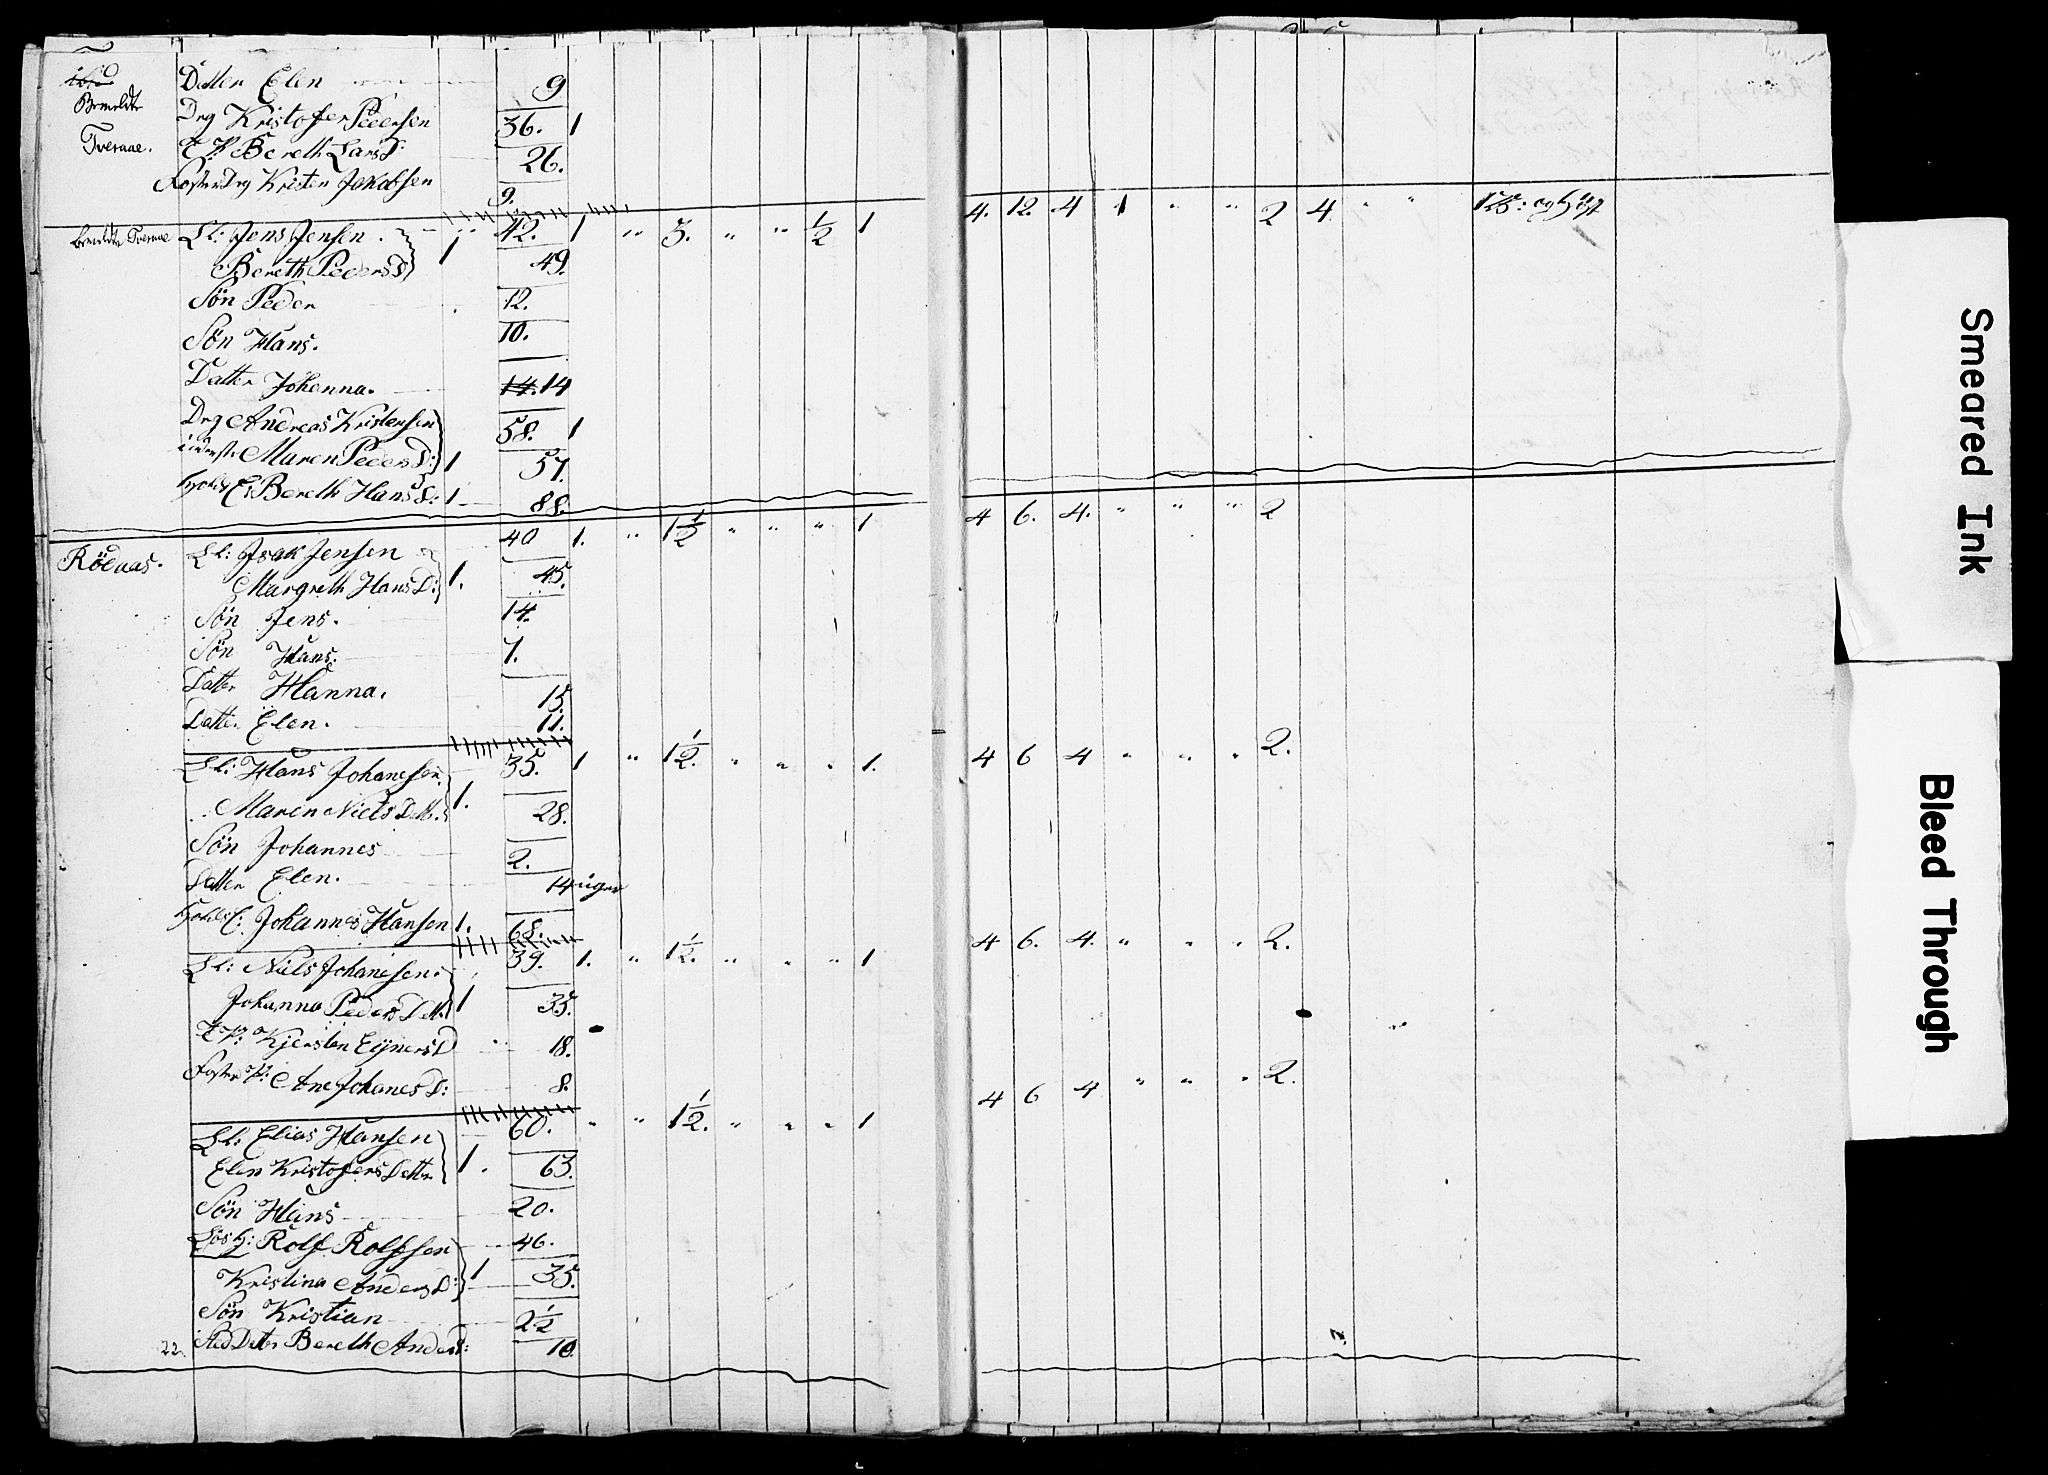 Datter Elen 9
Bemeldte Drg Kristofer Pedersen 36. 1
Tveraae. T. P. Bereth Lars D: 26.
FosterDrg Kristen Jakobsen 9.
bemeldte Tveraae L: Jens Jensen. 42. 1 " 3. " " ½ 1 4. 12. 4 1 " " 2 4 " "
Bereth Peders D 1 49.
Sön Peder 12.
Sön Hans. 10.
Datter Johanna. 14. 14
Drg Andreas Kristensen 58. 1
inderste Maren Peders D: 1 57.
Bereth Hans D: 1 88.
Rödaas. L: Isak Jensen 40 1. " 1½ " " " 1 4 6. 4. " " " 2
Margreth Hans D: 1. 45.
Sön Jens. 14.
Sön Hans. 7.
Datter Hanna. 15.
Datter Elen. 11.
L: Hans Johanesen 35. 1 " 1½. " " " 1. 4 6 4 " " " 2.
Maren Niels Datt. 1. 28.
Sön Johannes 2.
Datter Elen. 14 uger
Johannes Hansen 1. 68.
L: Niels Johanesen. 39. 1. " 1½. " " " 1 4 6. 4. " " " 2.
Johanna Peders Datt. 1 35.
T. P: Kjersten Ejners D 18.
Foster P: Ane Johanes D: 8.
L: Elias Hansen 60. " " 1½. " " " 1 4 6 4 " " " 2.
Elen Kristofers Datter 1. 63.
Sön Hans 20.
Rolf Rolfsen 46.
Kristina Anders D: 1 35.
Sön Kristian 2½
22. Sted Datter Bereth Anders D: 10.
Smeared Ink
Bleed Through